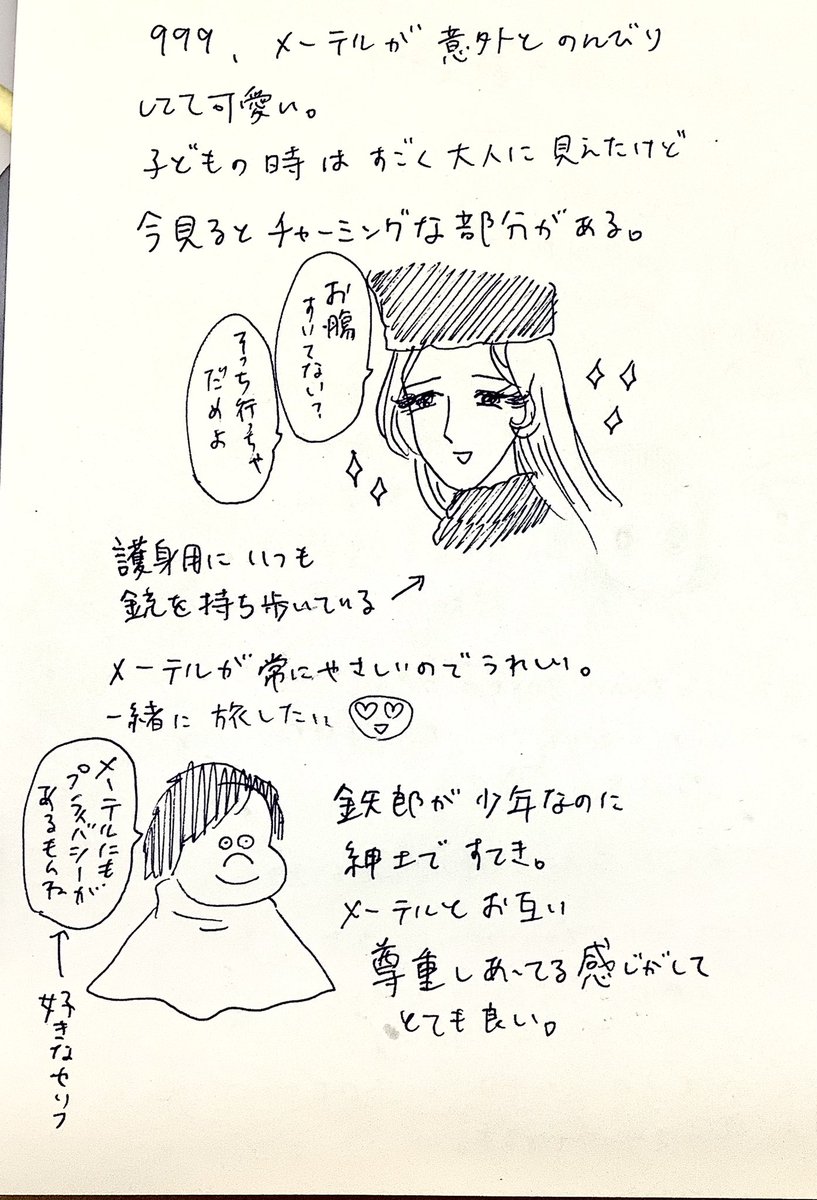 999、メーテルが意外とのんびり
してて可愛い。
子どもの時はすごく大人に見えたけど
今見るとチャーミングな部分がある。
お腹
すいてない?
そっち行っちゃ
だめよ
護身用にいつも
銃を持ち歩いている
メーテルが常にやさしいのでうれしい。
一緒に旅したい
メーテルにも
プライバシーが
あるもんね
好きなセリフ
鉄郎が少年なのに
紳士ですてき。
メーテルとお互い
尊重しあってる感じがして
とても良い。